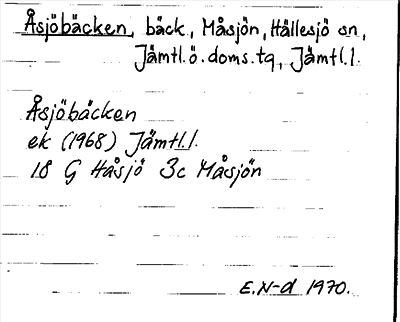 Åsjöbäcken, bäck., Måsjön, Hällesjö sn,
Jämtl.ö.doms.tg, Jämtl.l.
Åsjöbäcken
ek (1968) Jämtl.l.
18 G Håsjö 3c Måsjön
E.N-d 1970.